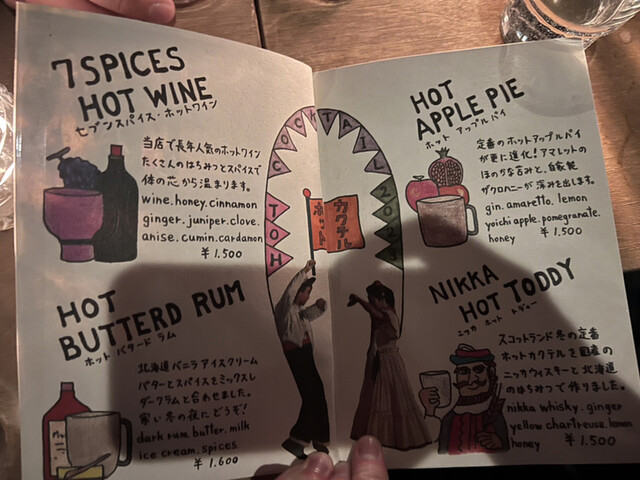 7 SPICES
HOT WINE
セブンスパイス・ホットワイン
当店で長年人気のホットワイン
たくさんのはちみつとスパイスで
体の芯から温まります。
wine.honey.cinnamon
ginger.juniper.clove.
anise.cumin.cardamon
¥1.500
HOT
BUTTERD RUM
ホット バタード ラム
北海道バニラアイスクリーム
バターとスパイスをミックスし
ダークラムと合わせました。
寒い冬の夜にどうぞ!
dark rum.butter.milk
ice cream.spices
¥1.600
HOT COCKTAIL 2023
ホット
カクテル
HOT
APPLE PIE
ホット アップルパイ
定番のホットアップルパイ
が更に進化!アマレットの
ほのかな苦みと、自家製
ザクロハニーが深みを出します。
gin.amaretto.lemon
yoichi apple.pomegranate.
honey ¥1.500
NIKKA
HOT TODDY
ニッカ ホット トディー
スコットランド冬の定番
ホットカクテルを国産の
ニッカウィスキーと北海道
のはちみつで作りました。
nikka whisky.ginger
yellow chartreuse.lemon
honey ¥1.500